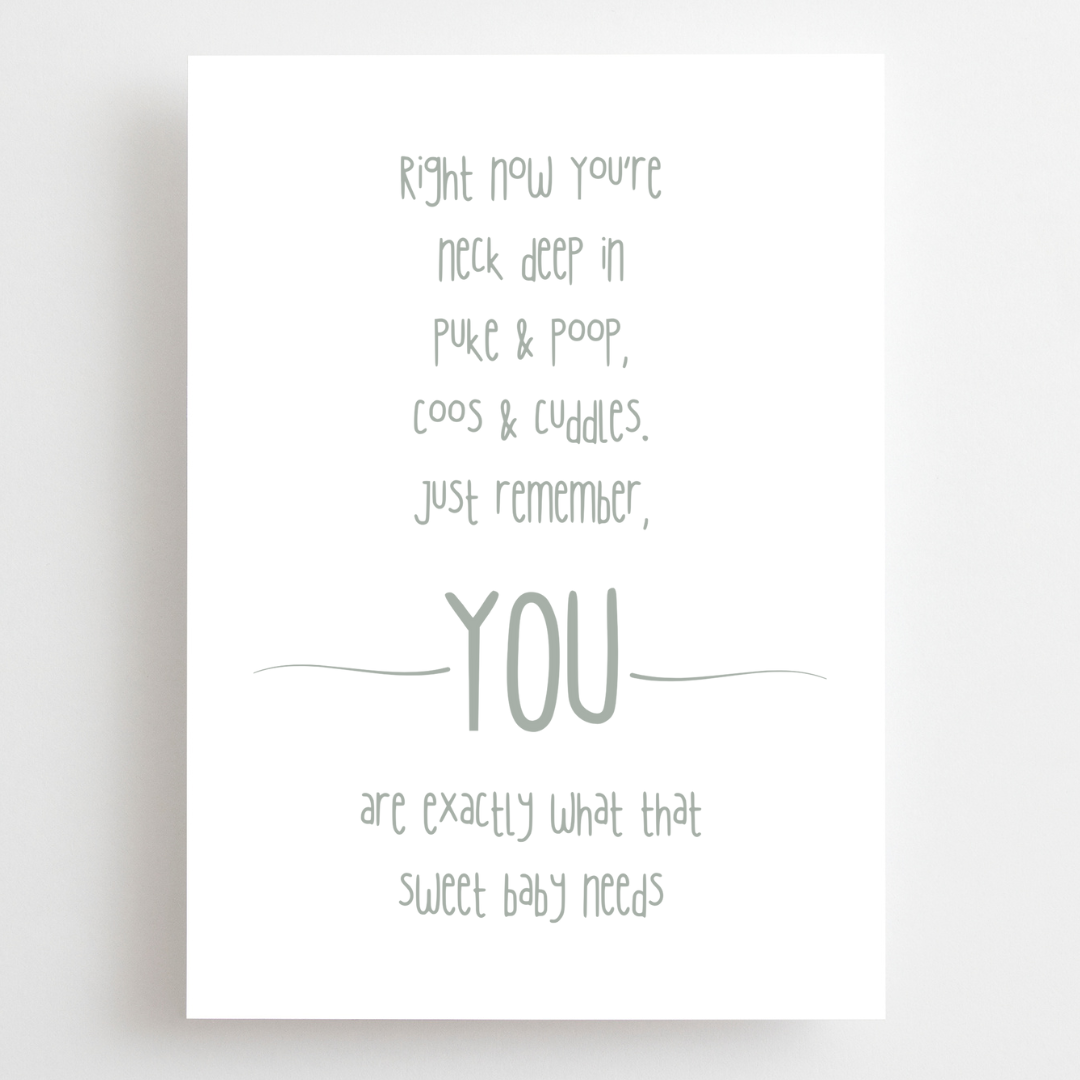 Right now you're
neck deep in
puke & poop,
coos & cuddles.
Just remember,
YOU
are exactly what that
sweet baby needs